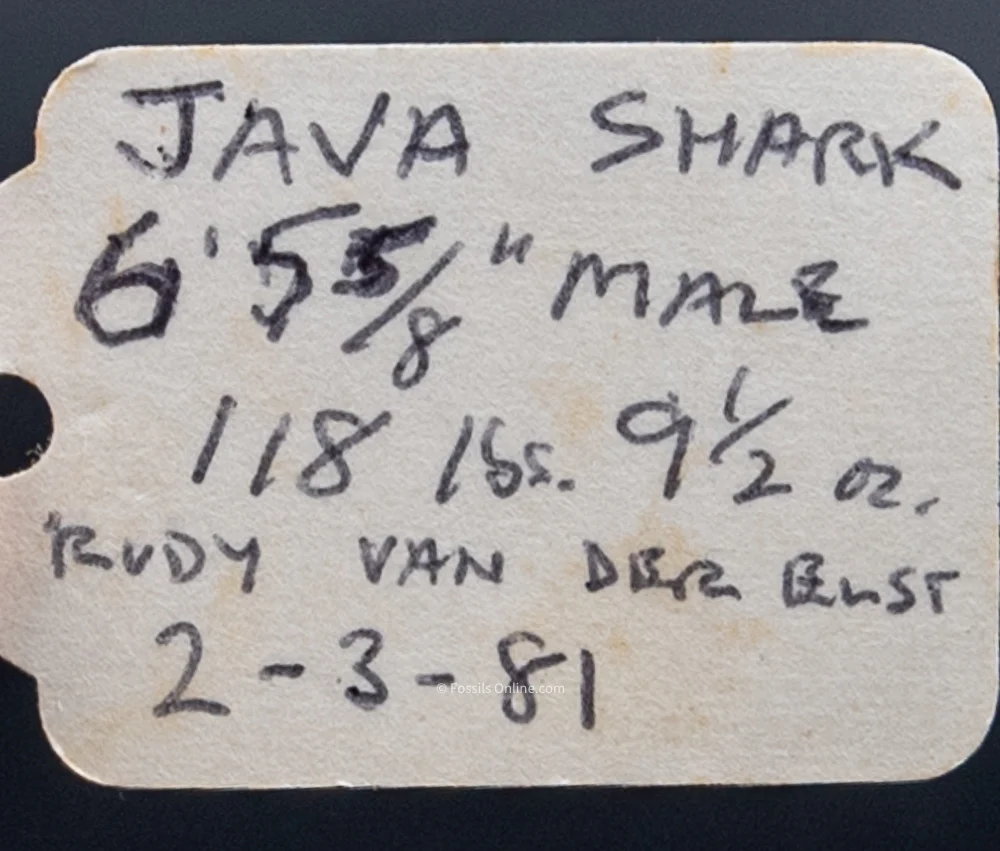 JAVA SHARK
6' 5 5/8" MALE
118 lbs. 9 1/2 oz.
RUDY VAN DER ELST
2-3-81
© Fossils Online.com